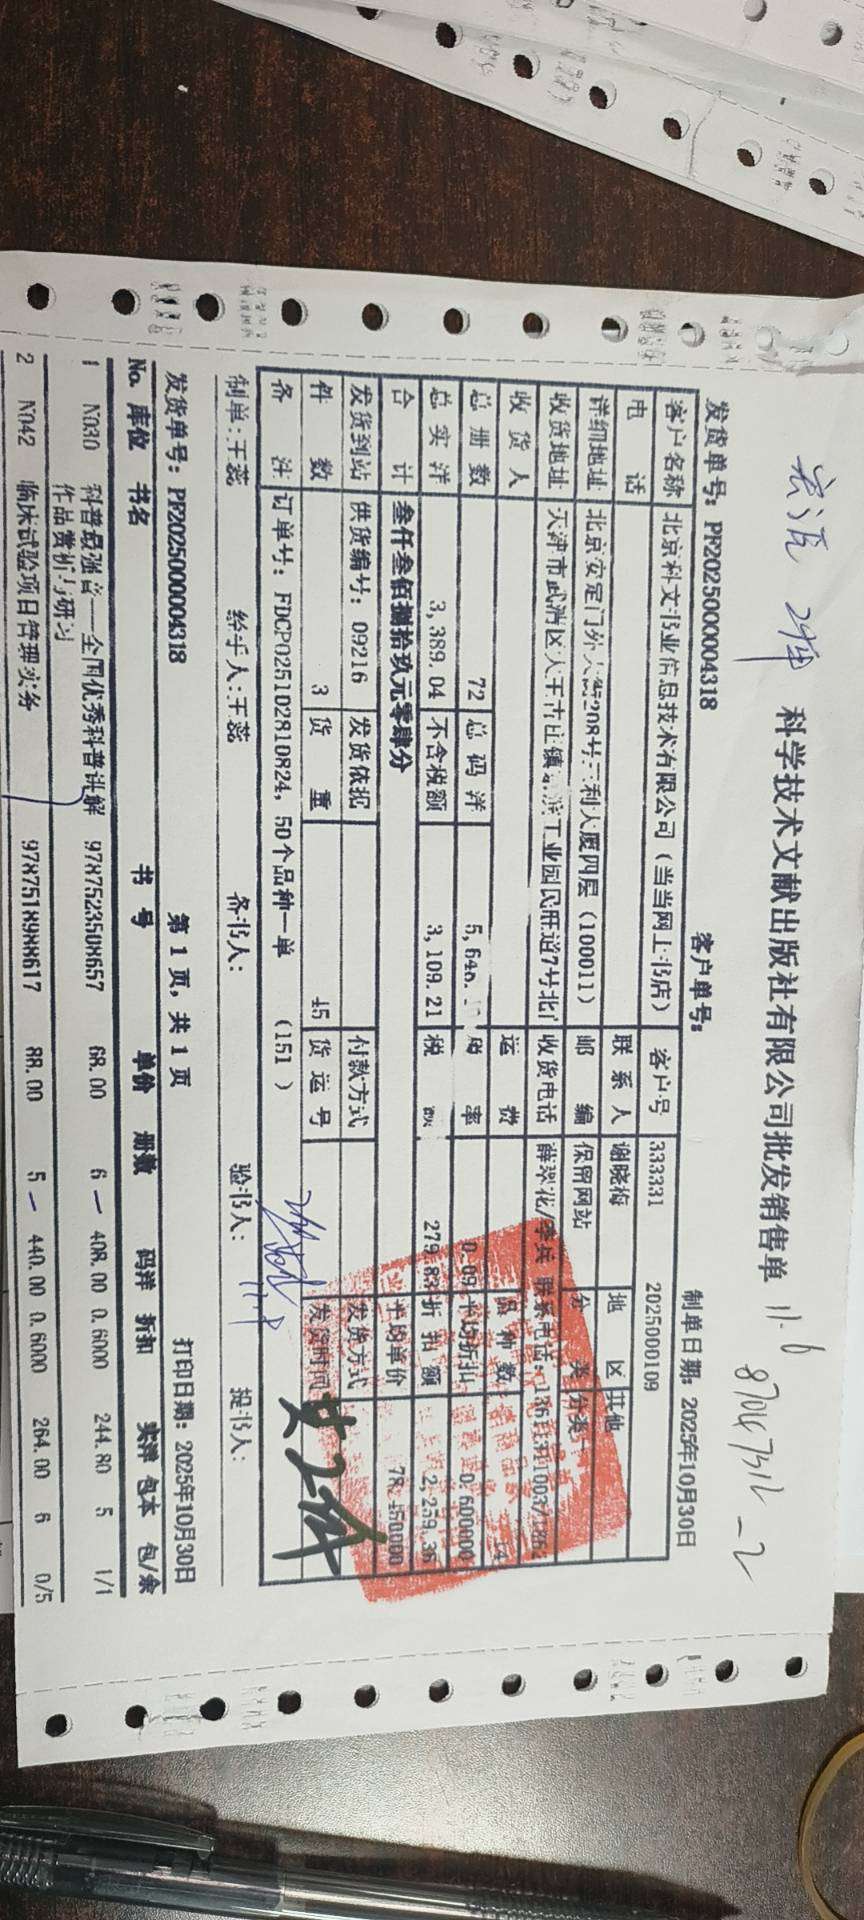 29件
科学技术文献出版社有限公司批发销售单
11.6
87047312-2
发货单号: PF2025000004318 客户单号: 制单日期: 2025年10月30日
客户名称 北京科文书业信息技术有限公司(当当网上书店) 客户号 333331 2025000109
电 话 联系人 谢晓梅 地 区 其他
详细地址 北京安定门外大街208号三利大厦四层(100011) 邮 编 保留网站 分 类 分类一
收货地址 天津市武清区大王古庄镇 工业园民旺道7号北门 收货电话 薛翠花/李兵 联系电话:
收货人 运 费 品种数 14
总册数 72 总码洋 5,648. 率 0.09 平均折扣 0.600000
总实洋 3,389.04 不含税额 3,109.21 税 额 279.83 折扣额 2,259.36
合 计 叁仟叁佰捌拾玖元零肆分 平均单价 78.450000
发货到站 供货编号: 09216 发货依据 付款方式 发货方式
件 数 3 货 重 45 货运号 发货时间
备 注 订单号: FDCP025102810824, 50个品种一单 (151 )
共2件
制单:王蕊 经手人:王蕊 备书人: 验书人: 提书人:
打印日期: 2025年10月30日
发货单号: PF2025000004318 第 1 页, 共 1 页
No. 库位 书名 书 号 单价 册数 码洋 折扣 实洋 包本 包/余
1 N030 科普最强音——全国优秀科普讲解 9787523508657 68.00 6 408.00 0.6000 244.80 5 1/1
作品赏析与研习
2 N042 临床试验项目管理实务 9787518988617 88.00 5 440.00 0.6000 264.00 6 0/5